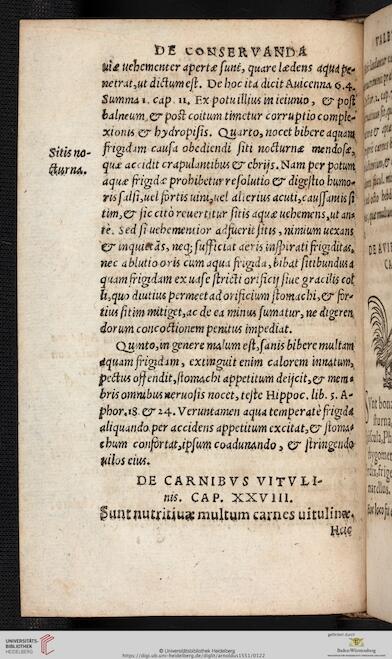 DE CONSERVANDA
uiæ uehementer apertæ sunt, quare lædens aqua pe-
netrat, ut dictum est. De hoc ita dicit Auicenna 6.4.
Summa 1. cap. 11. Ex potu illius in ieiunio, & post
balneum, & post coitum timetur corruptio comple-
xionis & hydropisis. Quarto, nocet bibere aquam
frigidam causa obediendi siti nocturnæ mendosæ,
Sitis no-
cturna.
quæ accidit crapulantibus & ebrijs. Nam per potum
aquæ frigidæ prohibetur resolutio & digestio humo-
ris salsi, uel fortis uini, uel alterius acuti, caussantis si
tim, & sic citò reuertitur sitis aquæ uehemens, ut an-
tè. Sed si uehementior adfuerit sitis, nimium uexans
& inquietãs, neq; sufficiat aeris inspirati frigiditas,
nec ablutio oris cum aqua frigida, bibat sitibundus a
quam frigidam ex uase stricti orificij siue gracilis col
li, quo diutius permeet ad orificium stomachi, & for-
tius sitim mitiget, ac de ea minus sumatur, ne digeren
dorum concoctionem penitus impediat.
Quinto, in genere malum est, sanis bibere multam
aquam frigidam, extinguit enim calorem innatum,
pectus offendit, stomachi appetitum deijcit, & mem-
bris omnibus neruosis nocet, teste Hippoc. lib. 5. A-
phor. 18. & 24. Veruntamen aqua temperatè frigida
aliquando per accidens appetitum excitat, & stoma-
chum confortat, ipsum coadunando, & stringendo
uilos eius.
DE CARNIBVS VITVLI-
nis. CAP. XXVIII.
Sunt nutritiuæ multum carnes uitulinæ.
UNIVERSITÄTS-
BIBLIOTHEK
HEIDELBERG
© Universitätsbibliothek Heidelberg
https://digi.ub.uni-heidelberg.de/diglit/arnoldus1551/0122
gefördert durch
Baden-Württemberg